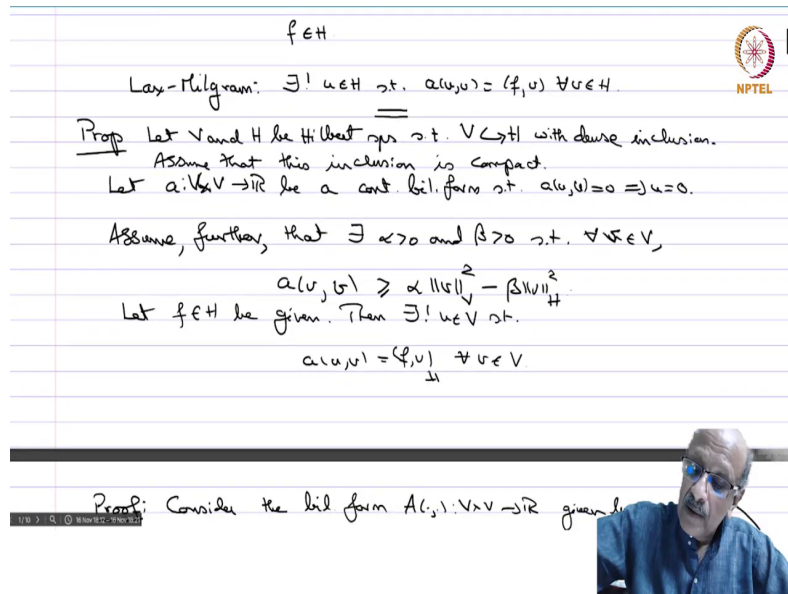 f ∈ H
NPTEL
Lax-Milgram: ∃! u∈H s.t. a(u,v) = (f,v) ∀v∈H.
Prop Let V and H be Hilbert sps s.t. V↪H with dense inclusion.
Assume that this inclusion is compact.
Let a: V×V → ℝ be a cont. bil. form s.t. a(u,u)=0 ⇒ u=0.
Assume, further, that ∃ α>0 and β>0 s.t. ∀ v∈V,
a(v,v) ≥ α ||v||²_V − β||v||²_H.
Let f∈H be given. Then ∃! u∈V s.t.
a(u,v) = (f,v)_H ∀ v∈V
Proof: Consider the bil form A(·,·): V×V → ℝ given by
1/10 16 Nov 18:12 - 19 Nov 18:21